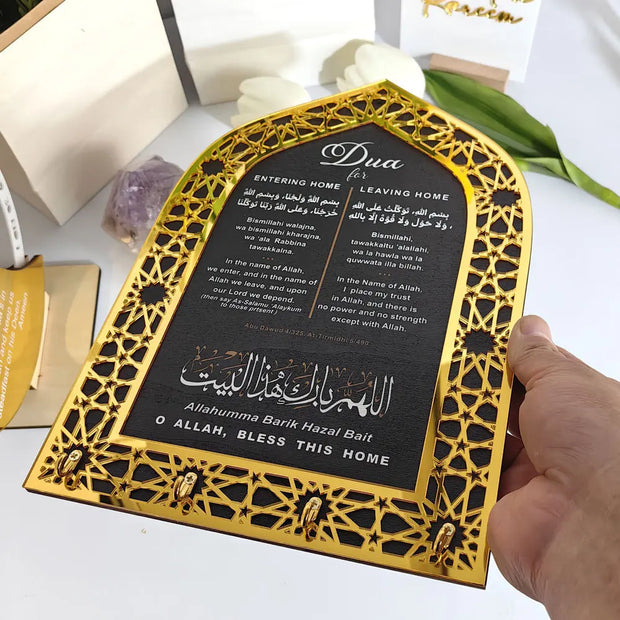 Kareem
Dua
for
ENTERING HOME
بِسْمِ اللهِ وَلَجْنَا، وَبِسْمِ اللهِ
خَرَجْنَا، وَعَلَى اللهِ رَبِّنَا تَوَكَّلْنَا
Bismillahi walajna,
wa bismillahi kharajna,
wa 'ala Rabbina
tawakkalna.
...
In the name of Allah,
we enter, and in the name of
Allah we leave, and upon
our Lord we depend.
(then say As-Salamu 'Alaykum
to those prtsent.)
LEAVING HOME
بِسْمِ اللهِ، تَوَكَّلْتُ عَلَى اللهِ
، وَلَا حَوْلَ وَلَا قُوَّةَ إِلَّا بِاللهِ
Bismillahi,
tawakkaltu 'alallahi,
wa la hawla wa la
quwwata illa billah.
...
In the Name of Allah,
I place my trust
in Allah, and there is
no power and no strength
except with Allah.
Abu Dawud 4/325, At-Tirmidhi 5/490
اللهم بارك هذا البيت
Allahumma Barik Hazal Bait
O ALLAH, BLESS THIS HOME